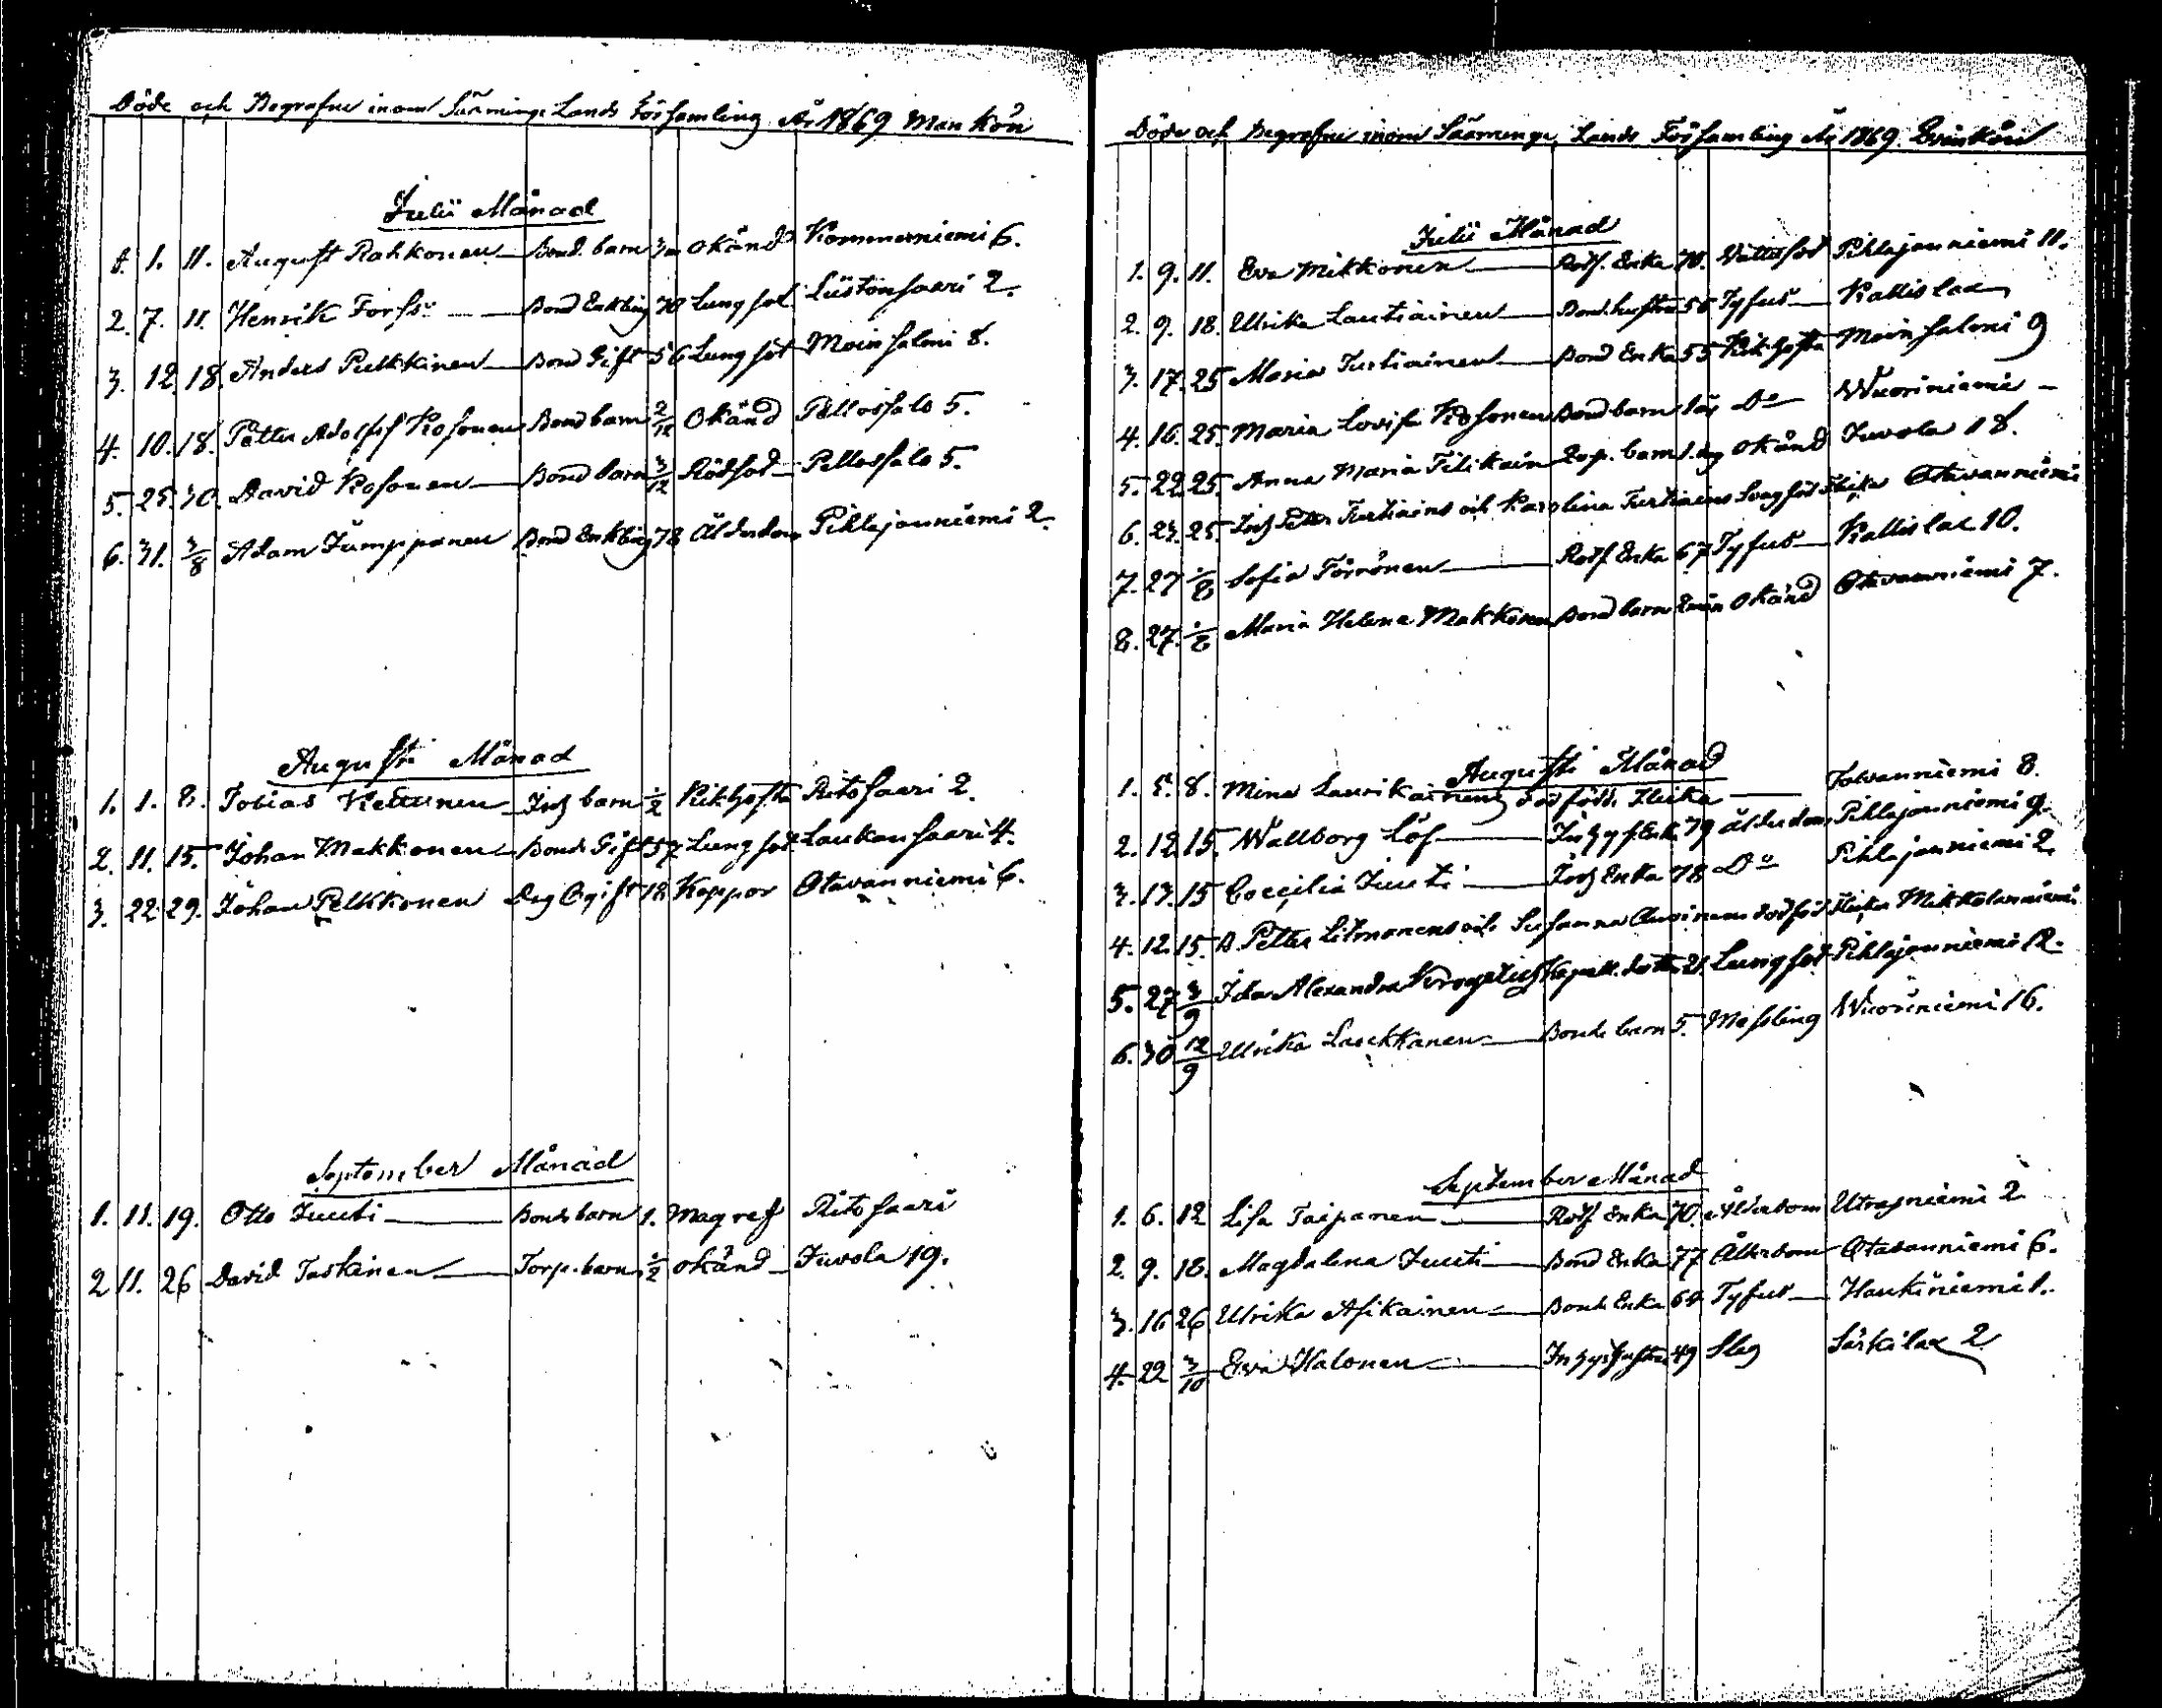 Döde och Begrafne inom Säminge Lands Församling År 1869 Man Kön
Julii Månad
1. 1. 11. August Rahkonen Bond. barn 3/m okänd Kommerniemi 6.
2. 7. 11. Henrik Forss Bond Enkling 70 Lungsot Liistonsaari 2.
3. 12. 18. Anders Pulkkinen Bond Gift 56 Lungsot Moinsalmi 8.
4. 10. 18. Petter Adolf Kosonen Bond barn 2/12 Okänd Pellossalo 5.
5. 25. 30. David Kosonen Bond barn 3/12 Rödsot Pellossalo 5.
6. 31. 3/8 Adam Jumppanen Bond Enkling 78 Ålderdom Pihlajaniemi 2.
Augusti Månad
1. 1. 8. Tobias Kettunen Inh barn 1/2 Kikhosta Ritosaari 2.
2. 11. 15. Johan Makkonen Bond Gift 57 Lungsot Laukansaari 4.
3. 22. 29. Johan Pelkkonen Drg Ogift 18 Koppor Otavanniemi 6.
September Månad
1. 11. 19. Otto Juuti Bond barn 1. Magref Ritosaari
2 11. 26 David Taskinen Torp. barn 1/2 okänd Juvola 19.
Döde och Begrafne inom Sääminge Lands Församling År 1869 Qvinkön
Julii Månad
1. 9. 11. Eva Mikkonen Rotf. Enka 70. Vattusot Pihlajaniemi 11.
2. 9. 18. Ulrika Lautiainen Bond. hustru 56 Tyfus Kallislax
3. 17. 25 Maria Turtiainen Bond Enka 55 Kikhosta Moinsalmi 9
4. 16. 25. Maria Lovisa Kosonen Bond barn 1 år Do Wuoriniemi
5. 22. 25. Anna Maria Tilikain Torp. barn 1. dag okänd Juvola 18.
6. 23. 25. Inh Petter Turtiains och Karolina Turtiains flicka Otavanniemi
7. 27 1/8 Sofia Törrönen Rotf Enka 67 Tyfus Kallislax 10.
8. 27. 1/8 Maria Helena Makkonen Bond barn 2 mån okänd Otavanniemi 7.
Augusti Månad
1. 5. 8. Mina Laurikainens dödfödd flicka Tolvanniemi 8.
2. 12 15. Wallborg Löf Enk. 79 ålderdom Pihlajaniemi 9.
3. 13. 15 Coecilia Juuti Inh Enka 78 Do Pihlajaniemi 2.
4. 12. 15. B Petter Litmanens och Susanna Auvinens dödföd flicka Mikkolanniemi
5. 27 3/9 Ida Alexandra Krogelius Kapell. dotter 21 Lungsot Pihlajaniemi 12.
6. 30 12/9 Ulrika Laukkanen Bond. barn 5. Messling Wuoriniemi 16.
September Månad
1. 6. 12 Lisa Taipanen Rotf Enka 70. Ålderdom Utrasniemi 2
2. 9. 18. Magdalena Juuti Bond Enka 77 Ålderdom Otavanniemi 6.
3. 16 26 Ulrika Asikainen Bond. Enka 64 Tyfus Haukiniemi 1.
4. 22 3/10 Eva Halonen hustru 49 Slag Särkilax 2